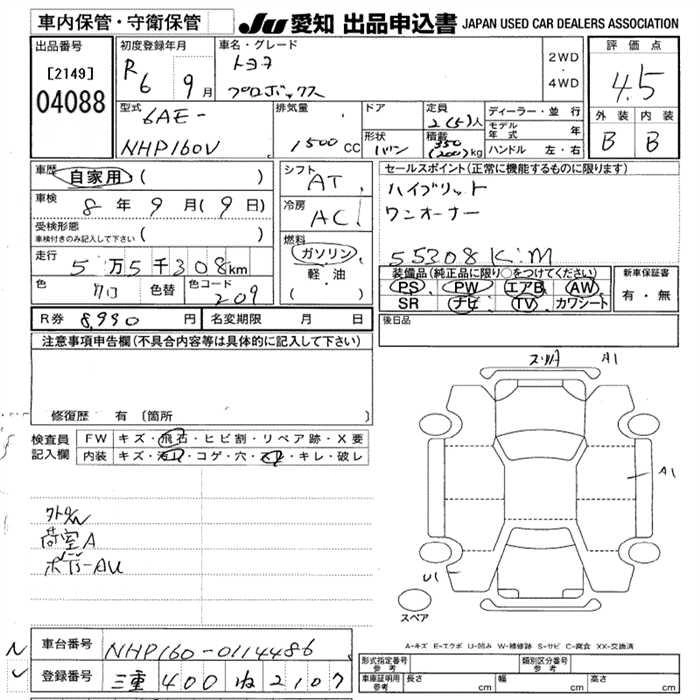 車内保管・守衛保管
JU 愛知 出品申込書 JAPAN USED CAR DEALERS ASSOCIATION
出品番号
[2149]
04088
初度登録年月
R 6 9 月
車名・グレード
トヨタ
プロボックス
2WD
・
4WD
評価点
4.5
外装 内装
B B
型式
6AE-
NHP160V
排気量
1500 CC
ドア
形状
バン
定員
2(5)人
積載
350
(200)kg
ディーラー・並行
モデル年式 年
ハンドル 左・右
車歴
自家用 ( )
車検
8 年 9 月 ( 9 日)
受検形態
車検付きのみ記入して下さい ( )
走行
5万5千308km
色
クロ
色替
色コード
209
シフト
AT
冷房
AC
燃料
ガソリン
軽・油
( )
セールスポイント (正常に機能するものに限ります)
ハイブリット
ワンオーナー
55308 K.M
装備品 (純正品に限り○をつけてください)
PS、 PW、 エアB、 AW、
SR ナビ TV カワシート
新車保証書
有・無
R券 8,990 円
名変期限 月 日
後日品
注意事項申告欄 (不具合内容等は具体的に記入して下さい)
修復歴 有 〔箇所
検査員
記入欄
FW キズ・飛石・ヒビ割・リペア跡・X要
内装 キズ・汚れ・コゲ・穴・スレ・キレ・破レ
荷室A
ボデー AU
スリA A1
A1
U1
スペア
A-キズ E-エクボ U-凹み W-補修跡 S-サビ C-腐食 XX-交換済
車台番号 NHP160-0114486
登録番号 三重 400 ね 2107
型式指定番号
参考
類別区分番号
参考
車庫証明用
参考
長さ cm 幅 cm 高さ cm